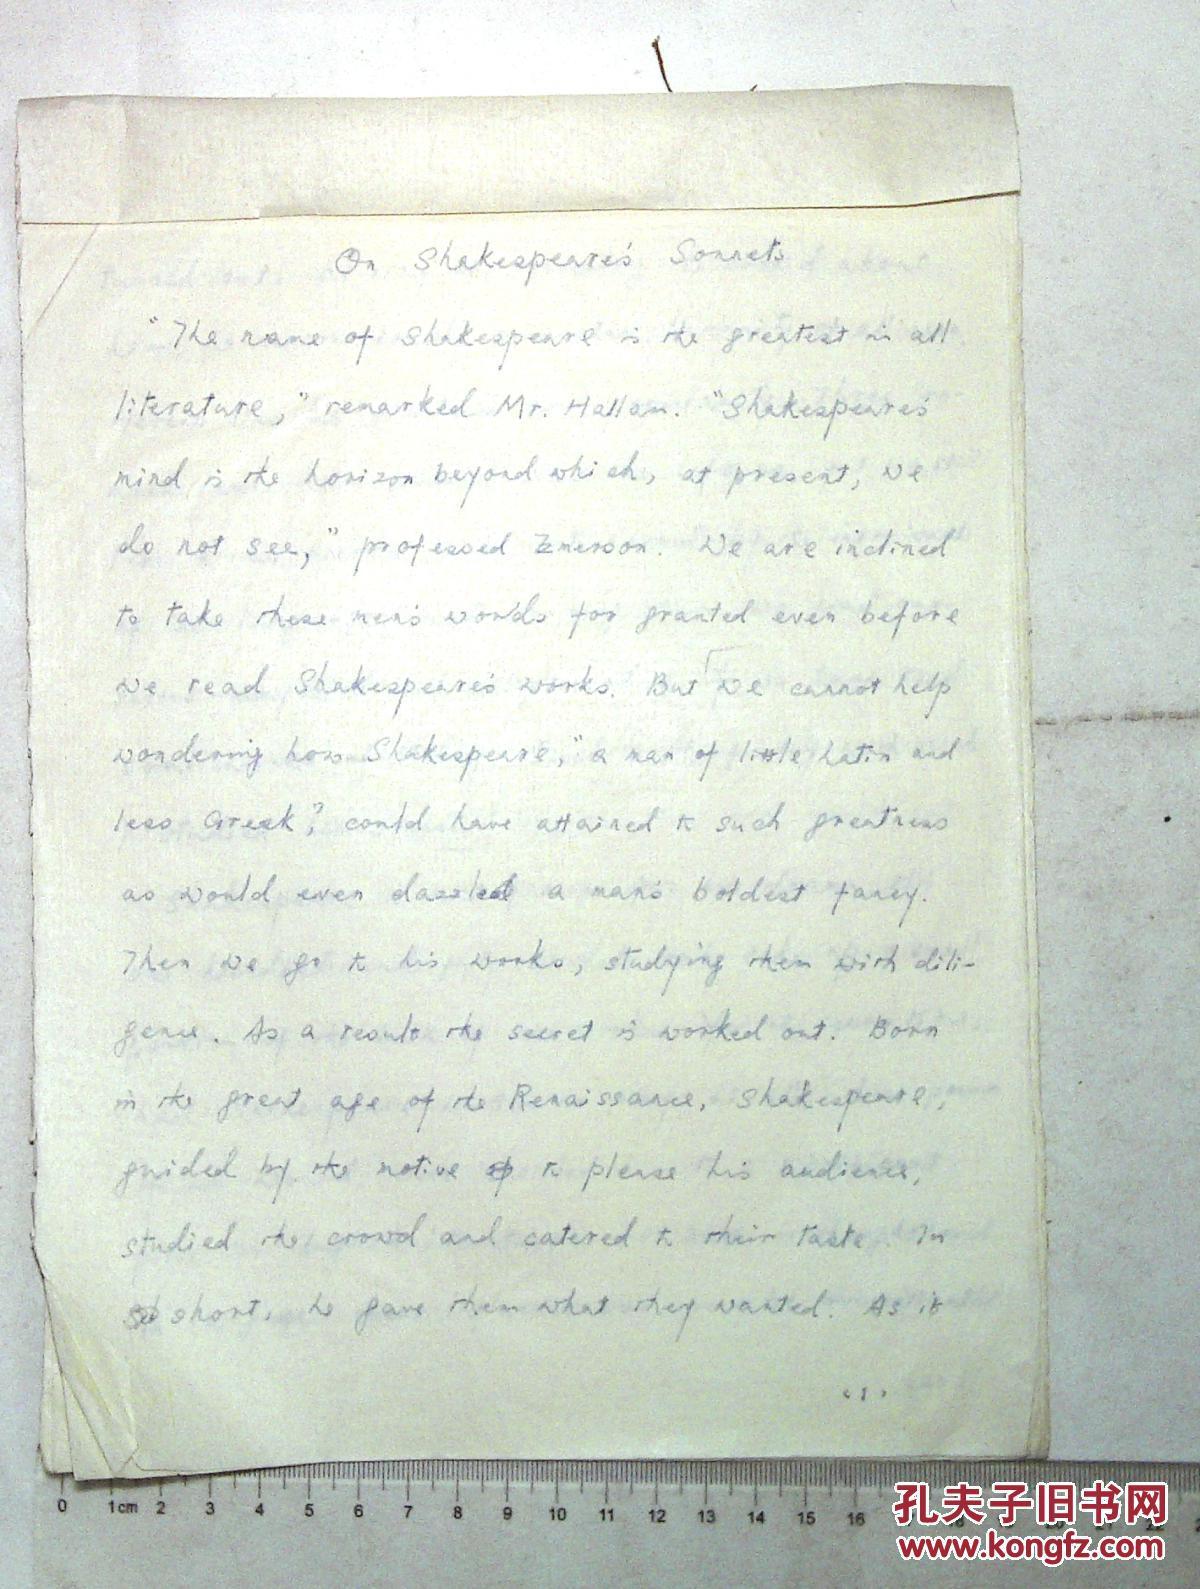 On Shakespeare's Sonnets
"The name of Shakespeare is the greatest in all
literature," remarked Mr. Hallam. "Shakespeare's
mind is the horizon beyond which, at present, we
do not see," professed Emerson. We are inclined
to take these men's words for granted even before
we read Shakespeare's works. But we cannot help
wondering how Shakespeare, "a man of little Latin and
less Greek", could have attained to such greatness
as would even dazzled a man's boldest fancy.
Then we go to his works, studying them with dili-
gence. As a result the secret is worked out. Born
in the great age of the Renaissance, Shakespeare,
guided by the motive to please his audience,
studied the crowd and catered to their taste. In
short, he gave them what they wanted. As it
<1>
0 1cm 2 3 4 5 6 7 8 9 10 11 12 13 14 15 16
孔夫子旧书网
www.kongfz.com